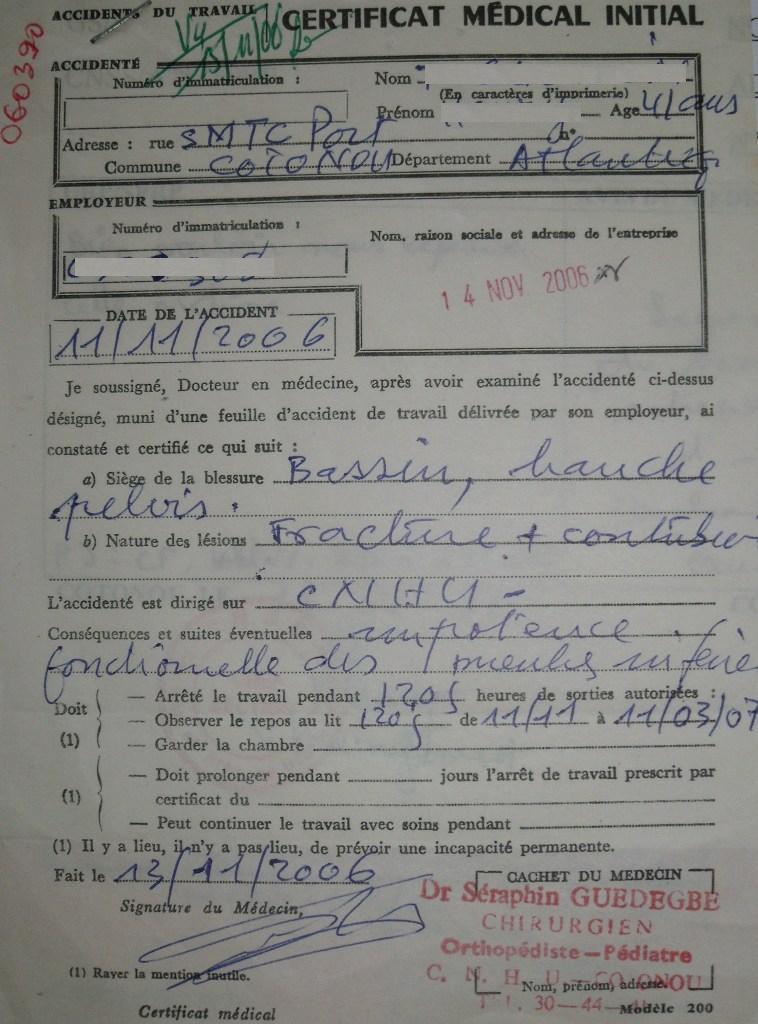 ACCIDENTS DU TRAVAIL CERTIFICAT MÉDICAL INITIAL
Vu
060390
ACCIDENTÉ
Numéro d'immatriculation :
Nom
(En caractères d'imprimerie)
Prénom Age 41 ans
Adresse : rue SMTC Port
Commune COTONOU Département Atlantique
EMPLOYEUR
Numéro d'immatriculation :
Nom, raison sociale et adresse de l'entreprise
14 NOV 2006
DATE DE L'ACCIDENT
11/11/2006
Je soussigné, Docteur en médecine, après avoir examiné l'accidenté ci-dessus
désigné, muni d'une feuille d'accident de travail délivrée par son employeur, ai
constaté et certifié ce qui suit :
a) Siège de la blessure Bassin, hanche
pelvis.
b) Nature des lésions Fracture + contusion
L'accidenté est dirigé sur CNHU -
Conséquences et suites éventuelles impotence
fonctionnelle des membres inférie
Doit (1)
— Arrêté le travail pendant 120j heures de sorties autorisées :
— Observer le repos au lit 120j de 11/11 à 11/03/07
— Garder la chambre
(1)
— Doit prolonger pendant jours l'arrêt de travail prescrit par
certificat du
— Peut continuer le travail avec soins pendant
(1) Il y a lieu, il n'y a pas lieu, de prévoir une incapacité permanente.
Fait le 13/11/2006
CACHET DU MEDECIN
Dr Séraphin GUEDEGBE
Signature du Médecin,
CHIRURGIEN
Orthopédiste — Pédiatre
C. N. H. U — COTONOU
(1) Rayer la mention inutile.
Nom, prénom, adresse.
30 — 44
Modèle 200
Certificat médical